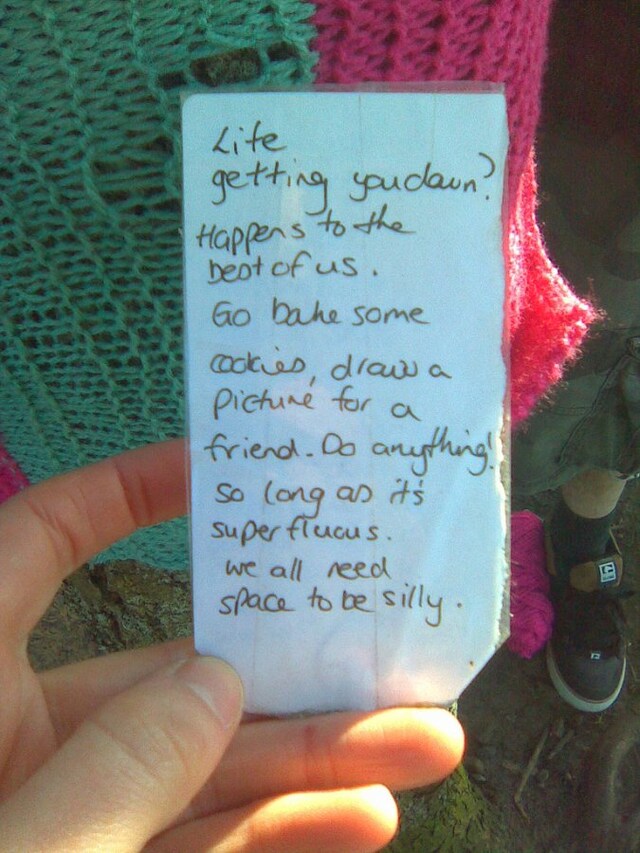 Life
getting you down?
Happens to the
best of us.
Go bake some
cookies, draw a
picture for a
friend. Do anything!
So long as it's
superflucus.
we all need
space to be silly.